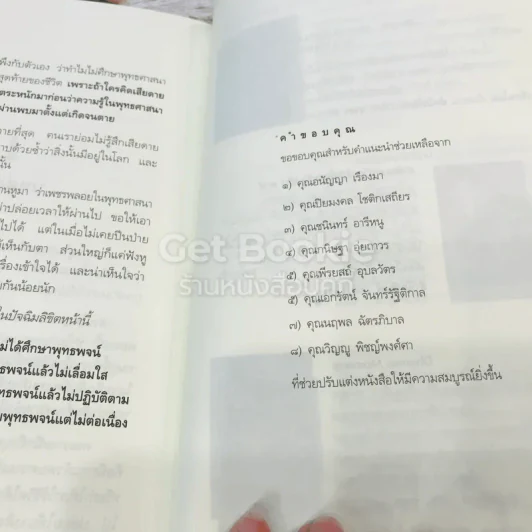 พึงกับตัวเอง ว่าทำไมไม่ศึกษาพุทธศาสนา
สุดท้ายของชีวิต เพราะถ้าใครคิดเสียดาย
ตระหนักมาก่อนว่าความรู้ในพุทธศาสนา
ผ่านพบมาตั้งแต่เกิดจนตาย
ายที่สุด คนเราย่อมไม่รู้สึกเสียดาย
าบด้วยซ้ำว่าสิ่งนั้นมีอยู่ในโลก และ
ั้น
านหูมา ว่าเพชรพลอยในพุทธศาสนา
าปล่อยเวลาให้ผ่านไป ขอให้เอา
ไปได้ แต่ในเมื่อไม่เคยปีนป่าย
เห็นกับตา ส่วนใหญ่ก็แค่ฟังหู
รื่องเข้าใจได้ และน่าเห็นใจว่า
กันน้อยนัก
ในปัจฉิมลิขิตหน้านี้
ม่ได้ศึกษาพุทธพจน์
ธพจน์แล้วไม่เลื่อมใส
ทธพจน์แล้วไม่ปฏิบัติตาม
มพุทธพจน์แต่ไม่ต่อเนื่อง
คำขอบคุณ
ขอขอบคุณสำหรับคำแนะนำช่วยเหลือจาก
๑) คุณอนัญญา เรืองมา
๒) คุณปิยมงคล โชติกเสถียร
๓) คุณชนินทร์ อารีหนู
๔) คุณกนิษฐา อุยถาวร
๕) คุณพีรยสถ์ อุบลวัตร
๕) คุณเอกรัตน์ จันทร์รัฐิติกาล
๗) คุณนฤพล ฉัตรภิบาล
๘) คุณวิญญู พิชญ์พงศ์ศา
ที่ช่วยปรับแต่งหนังสือให้มีความสมบูรณ์ยิ่งขึ้น
Get Bookie
ร้านหนังสือมือ